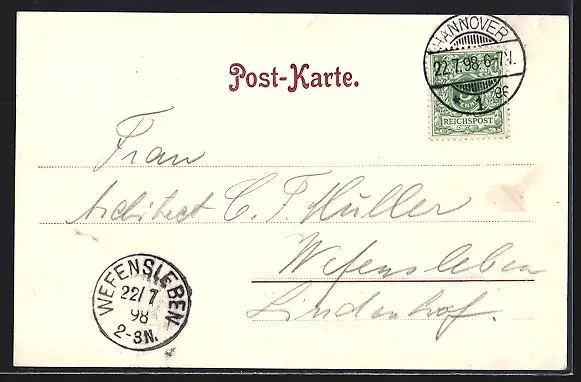 HANNOVER
22.7.98.6-7N.
1.
REICHSPOST
Post-Karte.
Frau
Architect C. F. Müller
Wefensleben
Lindenhof.
WEFENSLEBEN.
22/7
98
2-3N.